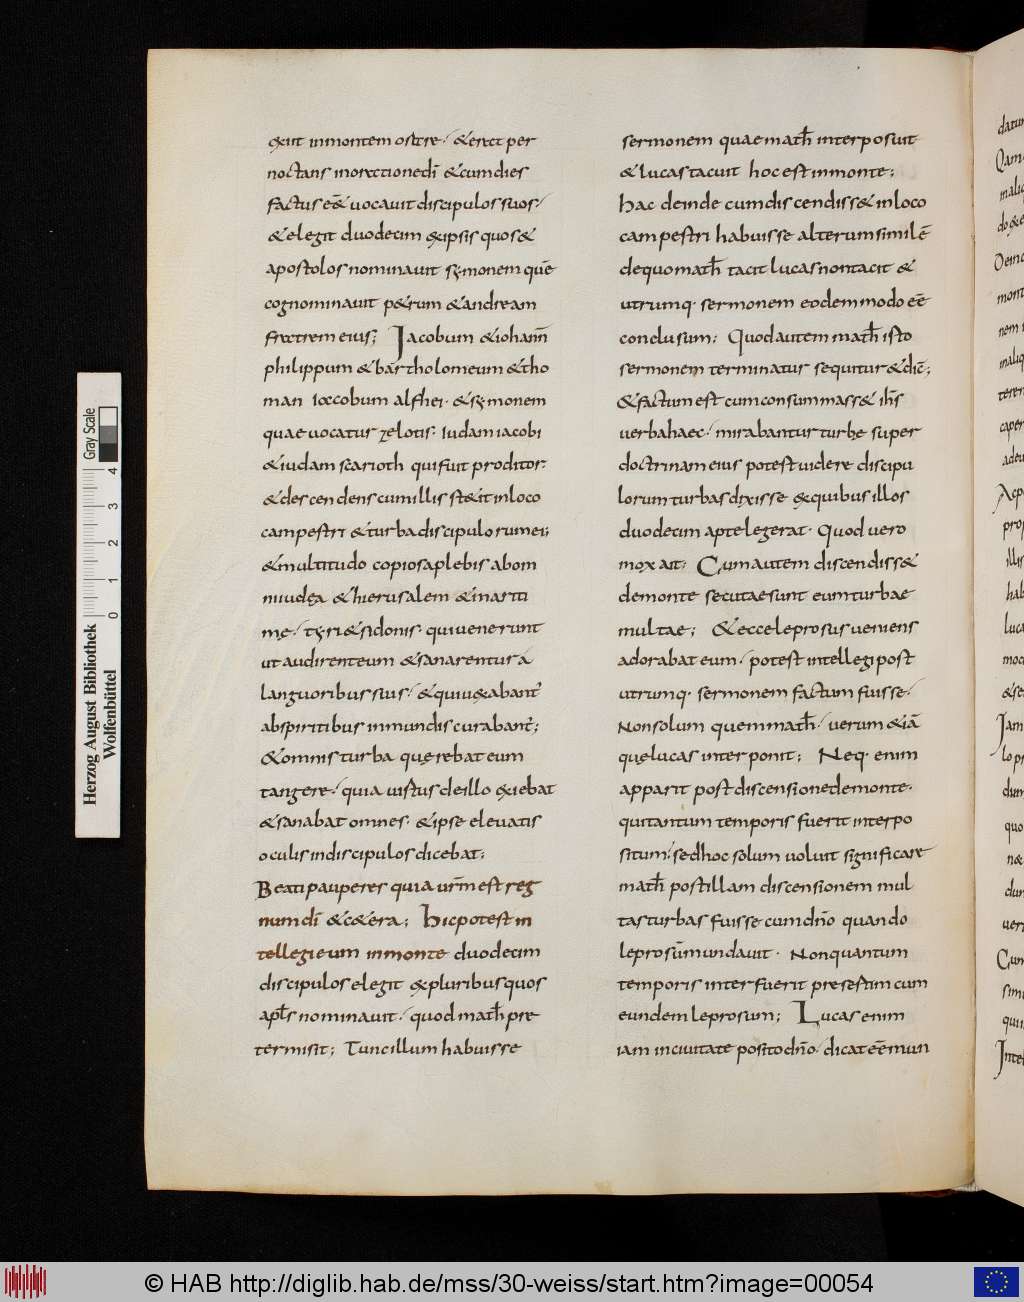 exiit inmontem orare · & erat per
noctans inorationedī & cumdies
factus eēt uocauit discipulos suos ·
& elegit duodecim exipsis quos &
apostolos nominauit symonem quē
cognominauit petrum & andream
fratrem eius; Iacobum & iohann̄
philippum & bartholomeum & tho
man iacobum alfhei · & symonem
quae uocatur zelotis · iudam iacobi
& iudam scarioth qui fuit proditor ·
& descendens cum illis stetit inloco
campestri & turba discipulorum ei;
& multitudo copiosa plebis ab om
ni iudęa & hierusalem & mariti
mę · tyri & sidonis · qui uenerunt
ut audirent eum & sanarentur a
languoribus suis · & qui uexabant̄
abspiritibus inmundis curabant̄;
& omnis turba quęrebat eum
tangere · quia uirtus deillo exiebat
& sanabat omnes · & ipse eleuatis
oculis indiscipulos dicebat;
Beati pauperes quia ur̄m est reg
num dī & cetera; hic potest in
tellegi eum inmonte duodecim
discipulos elegit expluribus quos
apl̄s nominauit · quod math̄ pre
termisit; Tunc illum habuisse
sermonem quae math̄ interposuit
& lucas tacuit hoc est inmonte;
hac deinde cum discendisset inloco
campestri habuisse alterum similē
dequo math̄ tacit lucas non tacit &
utrumq· sermonem eodem modo eē
conclusum; Quod autem math̄ isto
sermonem terminatur sequitur & dic̄;
& factum est cum consummasset ih̄s
uerba haec · mirabantur turbę super
doctrinam eius potest uidere discipu
lorum turbas dixisse exquibus illos
duodecim aptelegerat · Quod uero
mox ait; Cum autem discendisset
demonte secutae sunt eum turbae
multae; & ecce leprosus ueniens
adorabat eum · potest intellegi post
utrumq· sermonem factum fuisse ·
Non solum quem math̄ · uerum & iā
quę lucas interponit; Neq· enim
apparit post discensione demonte ·
qui tantum temporis fuerit interpo
situm · sed hoc solum uoluit significare
math̄ post illam discensionem mul
tas turbas fuisse cum dn̄o quando
leprosū mundauit · Non quantum
temporis interfuerit presestim cum
eundem leprosum; Lucas enim
iam inciuitate posito dn̄o · dicat eē mun
Herzog August Bibliothek
Wolfenbüttel
0 1 2 3 4
Gray Scale
© HAB http://diglib.hab.de/mss/30-weiss/start.htm?image=00054